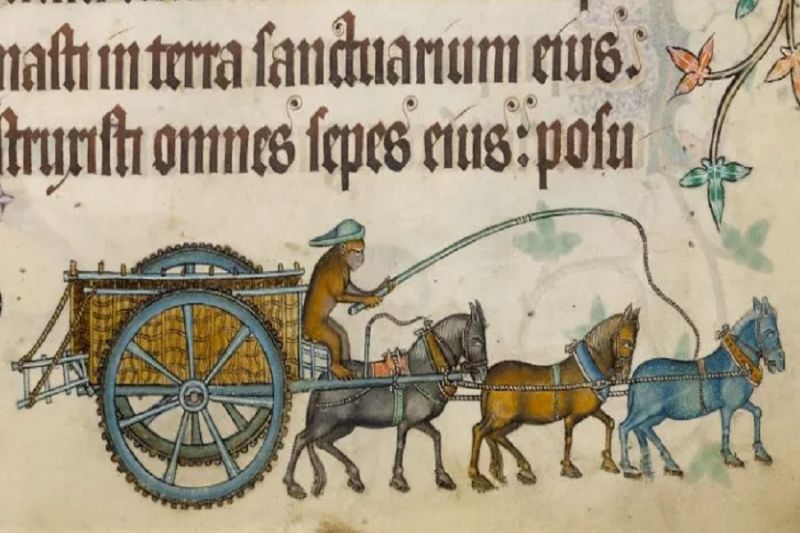 nasti in terra sanctuarium eius.
struxisti omnes sepes eius: posu